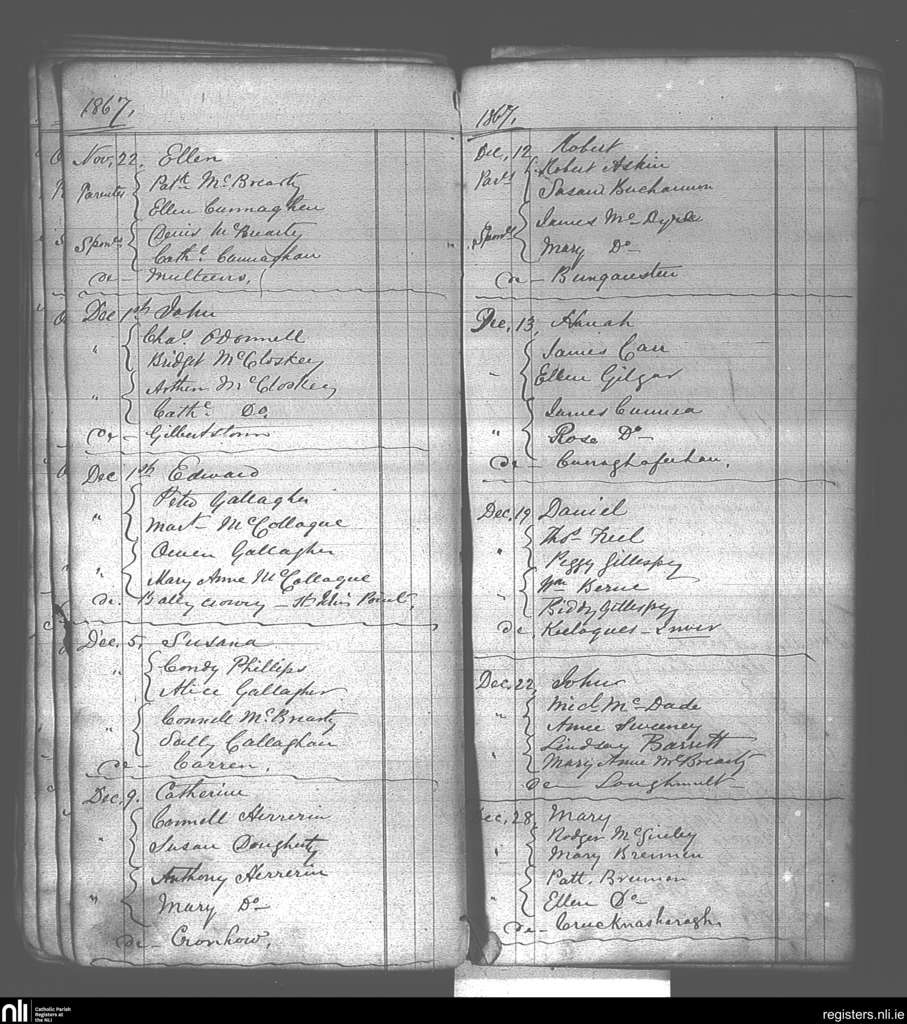 1867.
Nov. 22. Ellen
Parentes Patk McBrearty
Ellen Cunnaghan
Denis McBrearty
Sponrs Cathe. Cunnaghan
de – Multeens.
Dec 1st John
" Chas. O'Donnell
Bridget McCloskey
" Arthur McCloskey
Cathe. Do.
de – Gilbertstown
Dec 1st Edward
Peter Gallagher
" Mart. McCollague
Owen Gallagher
" Mary Anne McCollague
de. Ballycrowey – St
Dec. 5, Susana
" Condy Phillips
Alice Gallagher
" Connell McBrearty
Sally Callaghan
de – Carren.
Dec. 9. Catherine
Connell Herrerin
" Susan Dougherty
Anthony Herrerin
" Mary Do –
de – Cronkow.
1867.
Dec, 12, Robert
Robert Askin
Parts Susan Buchannon
James McDyre
Sponrs Mary Do –
de – Bungausteen
Dec, 13, Hanah
James Carr
" Ellen Gilgar
James Cunnea
" Rose Do –
de – Curraghafeehan.
Dec, 19, Daniel
Thos. Freel
" Peggy Gillespy
Wm Berne
" Biddy Gillespy
de – Keelogues – Inver
Dec, 22, John
" Mich. McDade
Anne Sweeney
" Lindsay Barrett
Mary Anne McBrearty
de – Loughmult –
Dec, 28, Mary
Rodger McGinley
" Mary Brennen
Patt. Brennan
" Ellen Do –
de – Crucknasharagh.
nli
Catholic Parish
Registers at
the NLI
registers.nli.ie